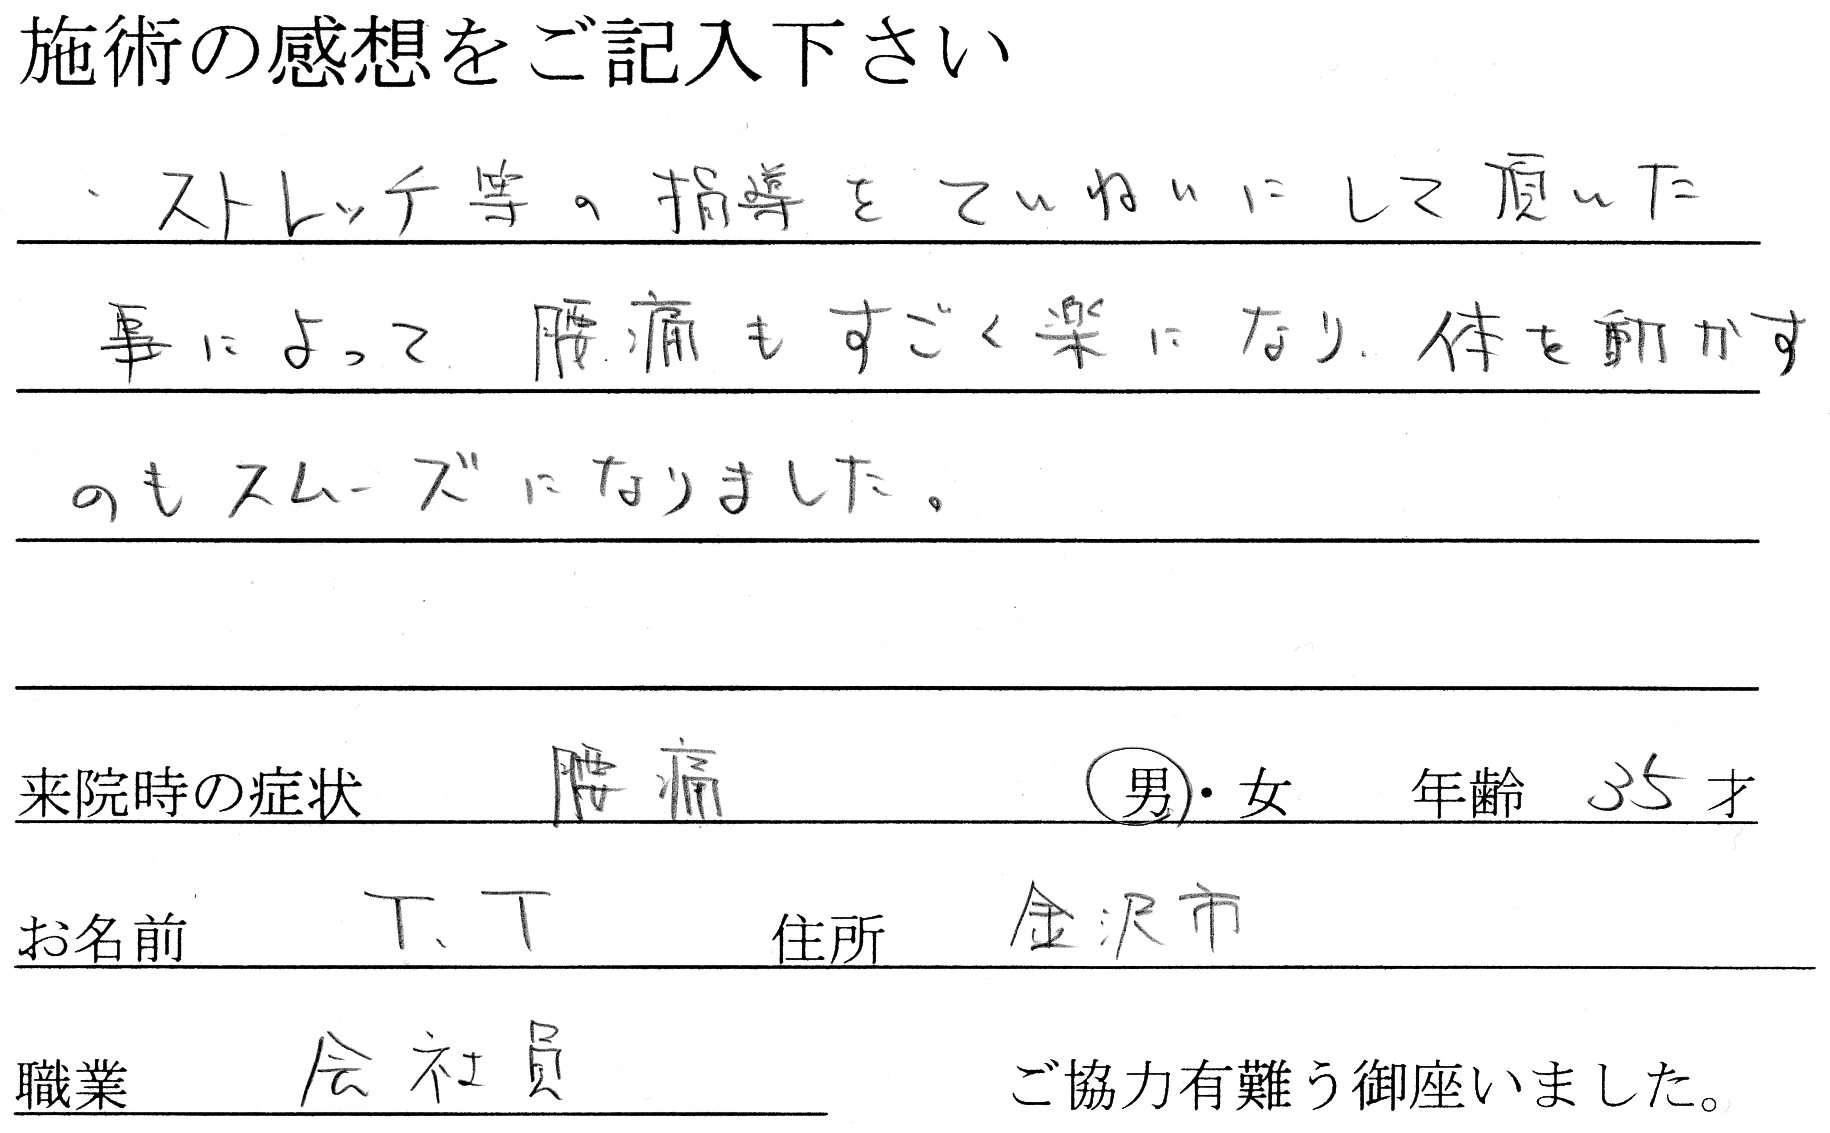 施術の感想をご記入下さい
・ストレッチ等の指導をていねいにして頂いた
事によって腰痛もすごく楽になり、体を動かす
のもスムーズになりました。
来院時の症状 腰痛 男・女 年齢 35才
お名前 T.T 住所 金沢市
職業 会社員 ご協力有難う御座いました。